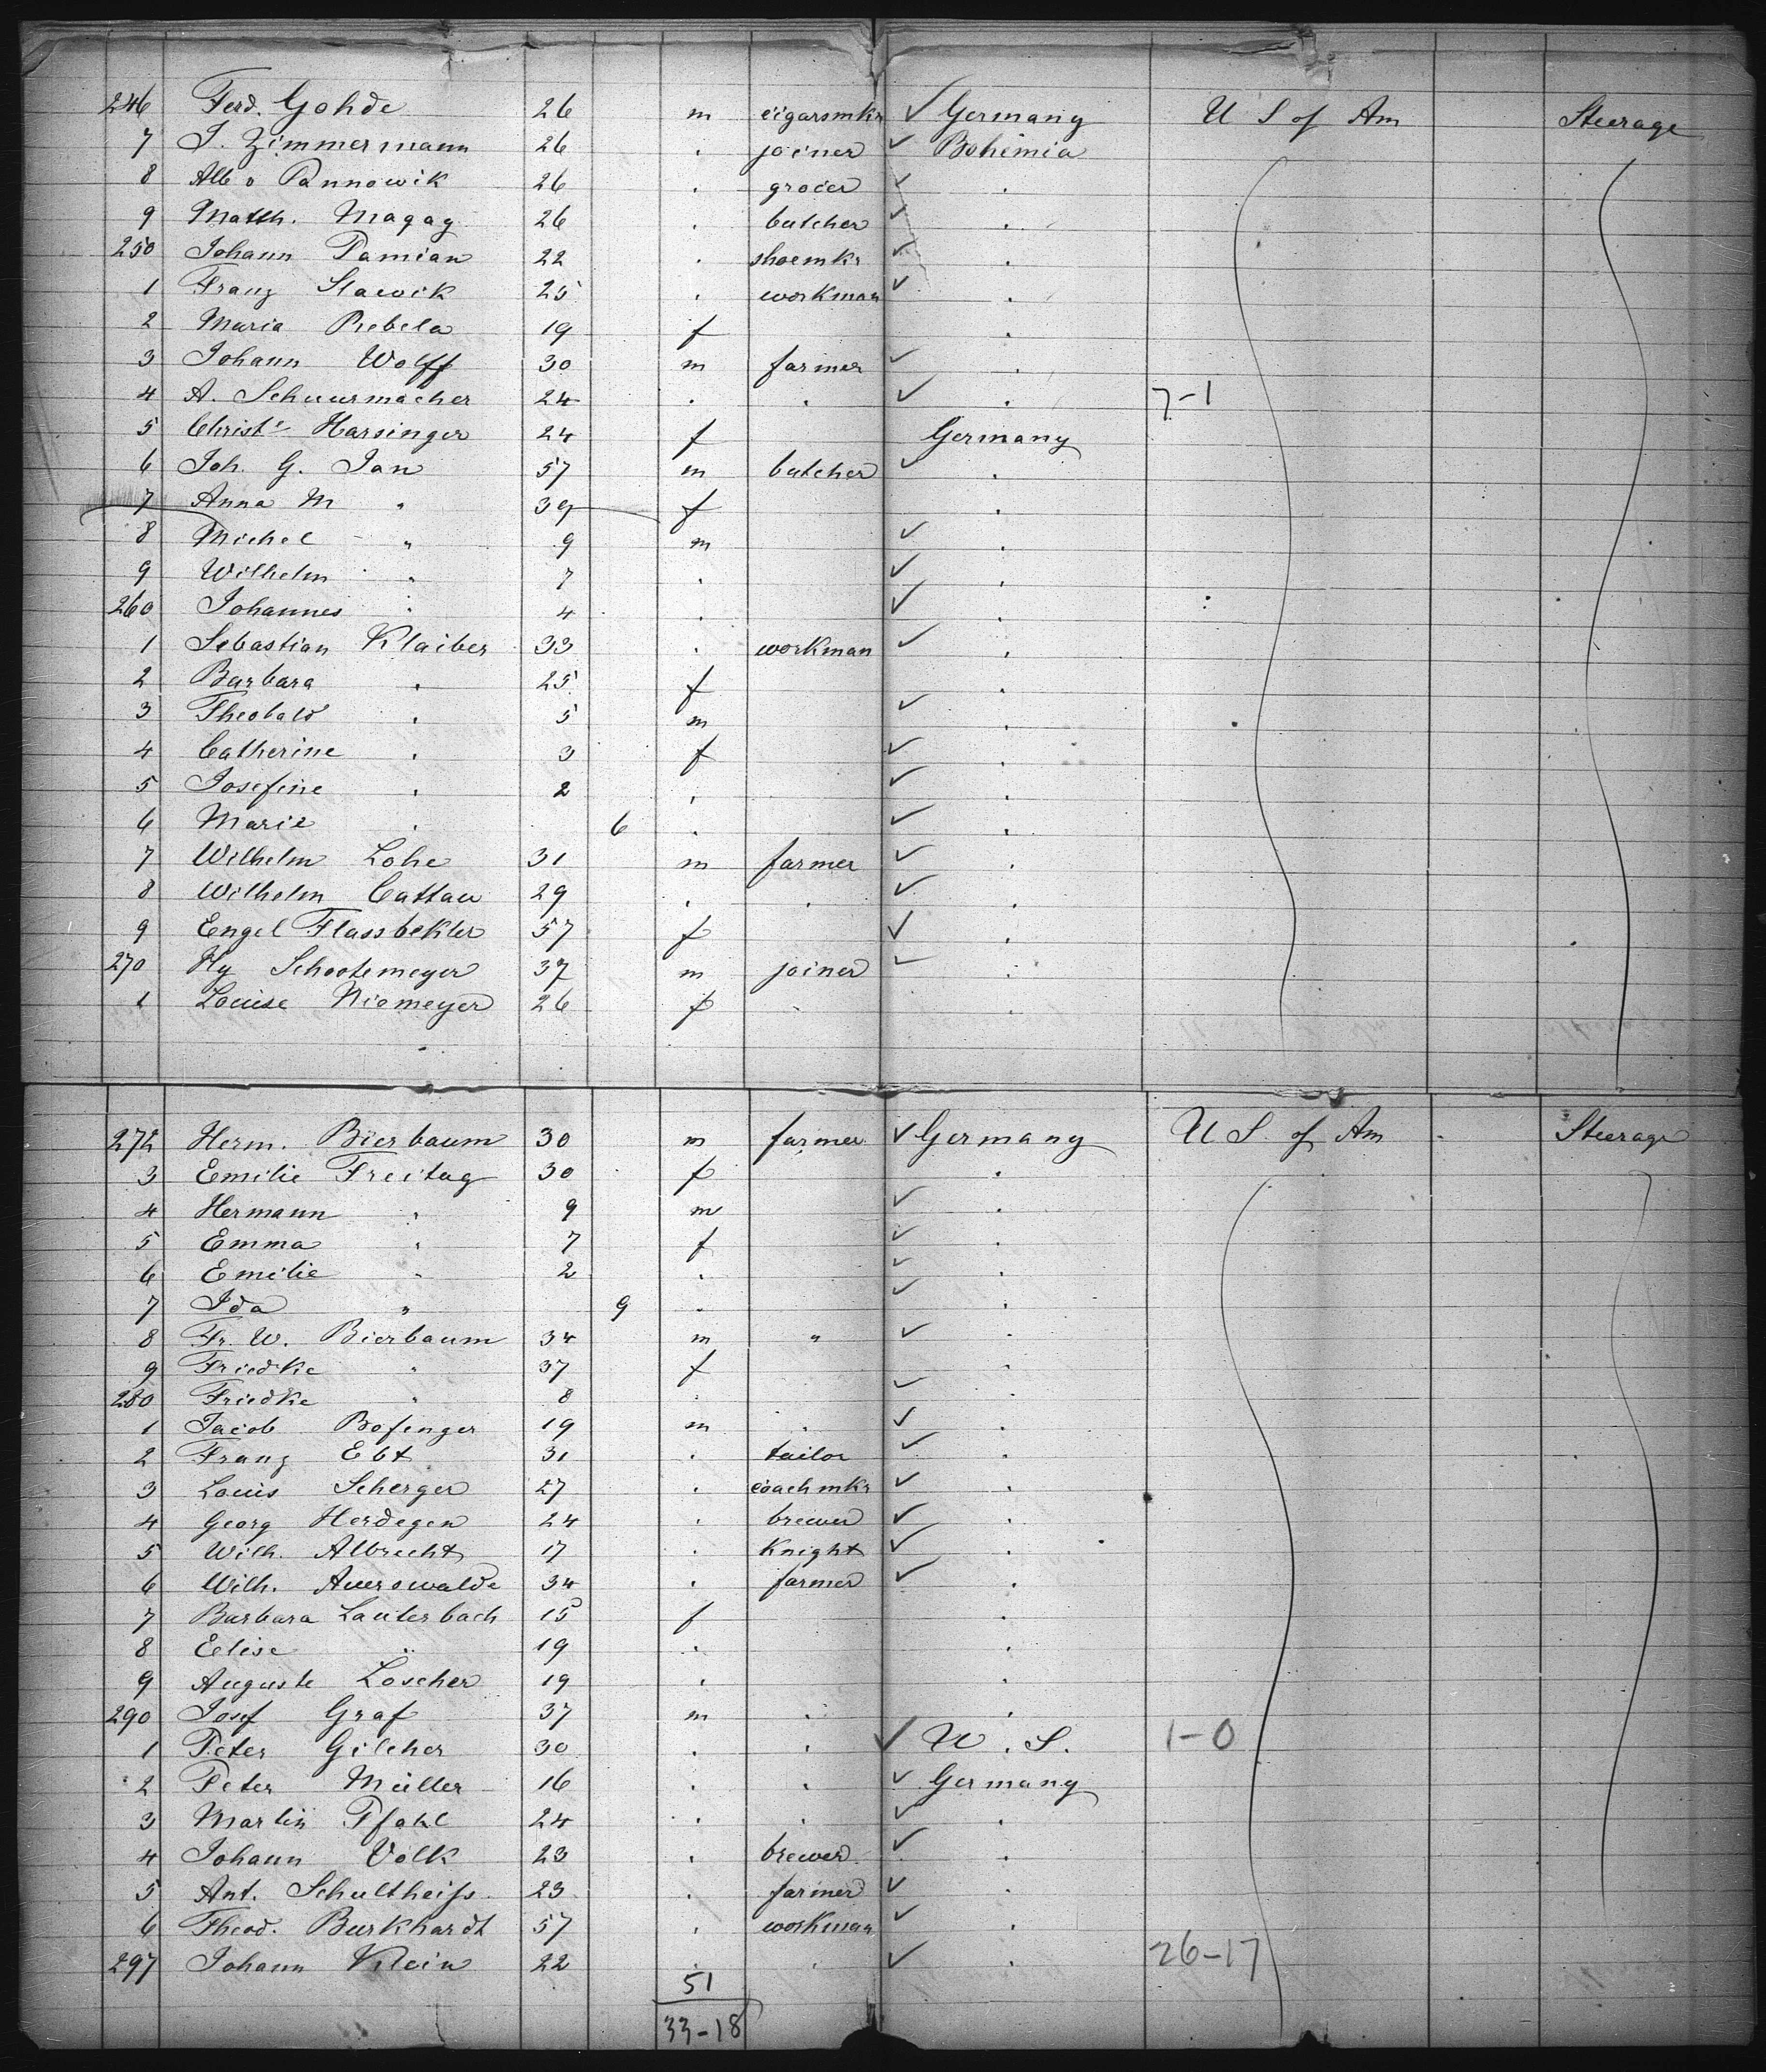 246 Ferd. Gohde 26 m cigarsmkr ✓ Germany U S of Am Steerage
7 J. Zimmermann 26 " joiner ✓ Bohimia
8 Alb v Pannowik 26 " grocer ✓ "
9 Matth. Magag 26 " butcher ✓ "
250 Johann Damian 22 " shoemkr ✓ "
1 Franz Slawik 25 " workman ✓ "
2 Maria Rebela 19 f "
3 Johann Wolff 30 m farmer ✓ "
4 A. Schuurmacher 24 " " ✓ " 7-1
5 Christe Harsinger 24 f Germany
6 Joh. G. Jan 57 m butcher ✓ "
7 Anna M " 39 f "
8 Michel " 9 m ✓ "
9 Wilhelm " 7 " ✓ "
260 Johannes " 4 " ✓ "
1 Sebastian Klaiber 33 " workman ✓ "
2 Barbara " 25 f "
3 Theobald " 5 m ✓ "
4 Catherine " 3 f ✓ "
5 Josefine " 2 " ✓ "
6 Marie " 6 " ✓ "
7 Wilhelm Lohe 31 m farmer ✓ "
8 Wilhelm Cattau 29 " " ✓ "
9 Engel Flassbekler 57 f ✓ "
270 Hy Schootemeyer 37 m joiner ✓ "
1 Louise Niemeyer 26 f " "
272 Herm. Bierbaum 30 m farmer ✓ Germany U S. of Am " Steerage
3 Emilie Freitag 30 f "
4 Hermann " 9 m ✓ "
5 Emma " 7 f ✓ "
6 Emilie " 2 " ✓ "
7 Ida " 9 " ✓ "
8 Fr. W. Bierbaum 34 m " ✓ "
9 Friedke " 37 f "
280 Friedke " 8 " ✓ "
1 Jacob Bofinger 19 m " ✓ "
2 Franz Ebt 31 " tailor ✓ "
3 Louis Scherger 27 " coachmkr ✓ "
4 Georg Herdegen 24 " brewer ✓ "
5 Wilh. Albrecht 17 " Knight ✓ "
6 Wilh. Auerswalde 34 " farmer ✓ "
7 Barbara Lauterbach 15 f "
8 Elise " 19 " "
9 Auguste Loscher 19 " "
290 Josef Graf 37 m " "
1 Peter Gilcher 30 " " ✓ U. S. 1-0
2 Peter Müller 16 " " ✓ Germany
3 Martin Pfahl 24 " " ✓ "
4 Johann Volk 23 " brewer ✓ "
5 Ant. Schultheiß 23 " farmer ✓ "
6 Theod. Burkhardt 57 " workman ✓ "
297 Johann Klein 22 " " ✓ " 26-17
51
33-18